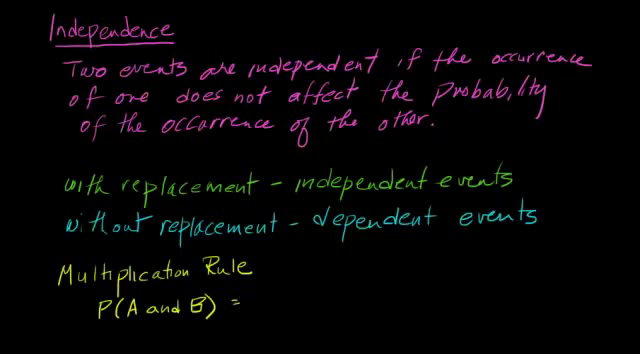 Independence
Two events are independent if the occurrence
of one does not affect the probability
of the occurrence of the other.
with replacement - independent events
without replacement - dependent events
Multiplication Rule
P(A and B) =